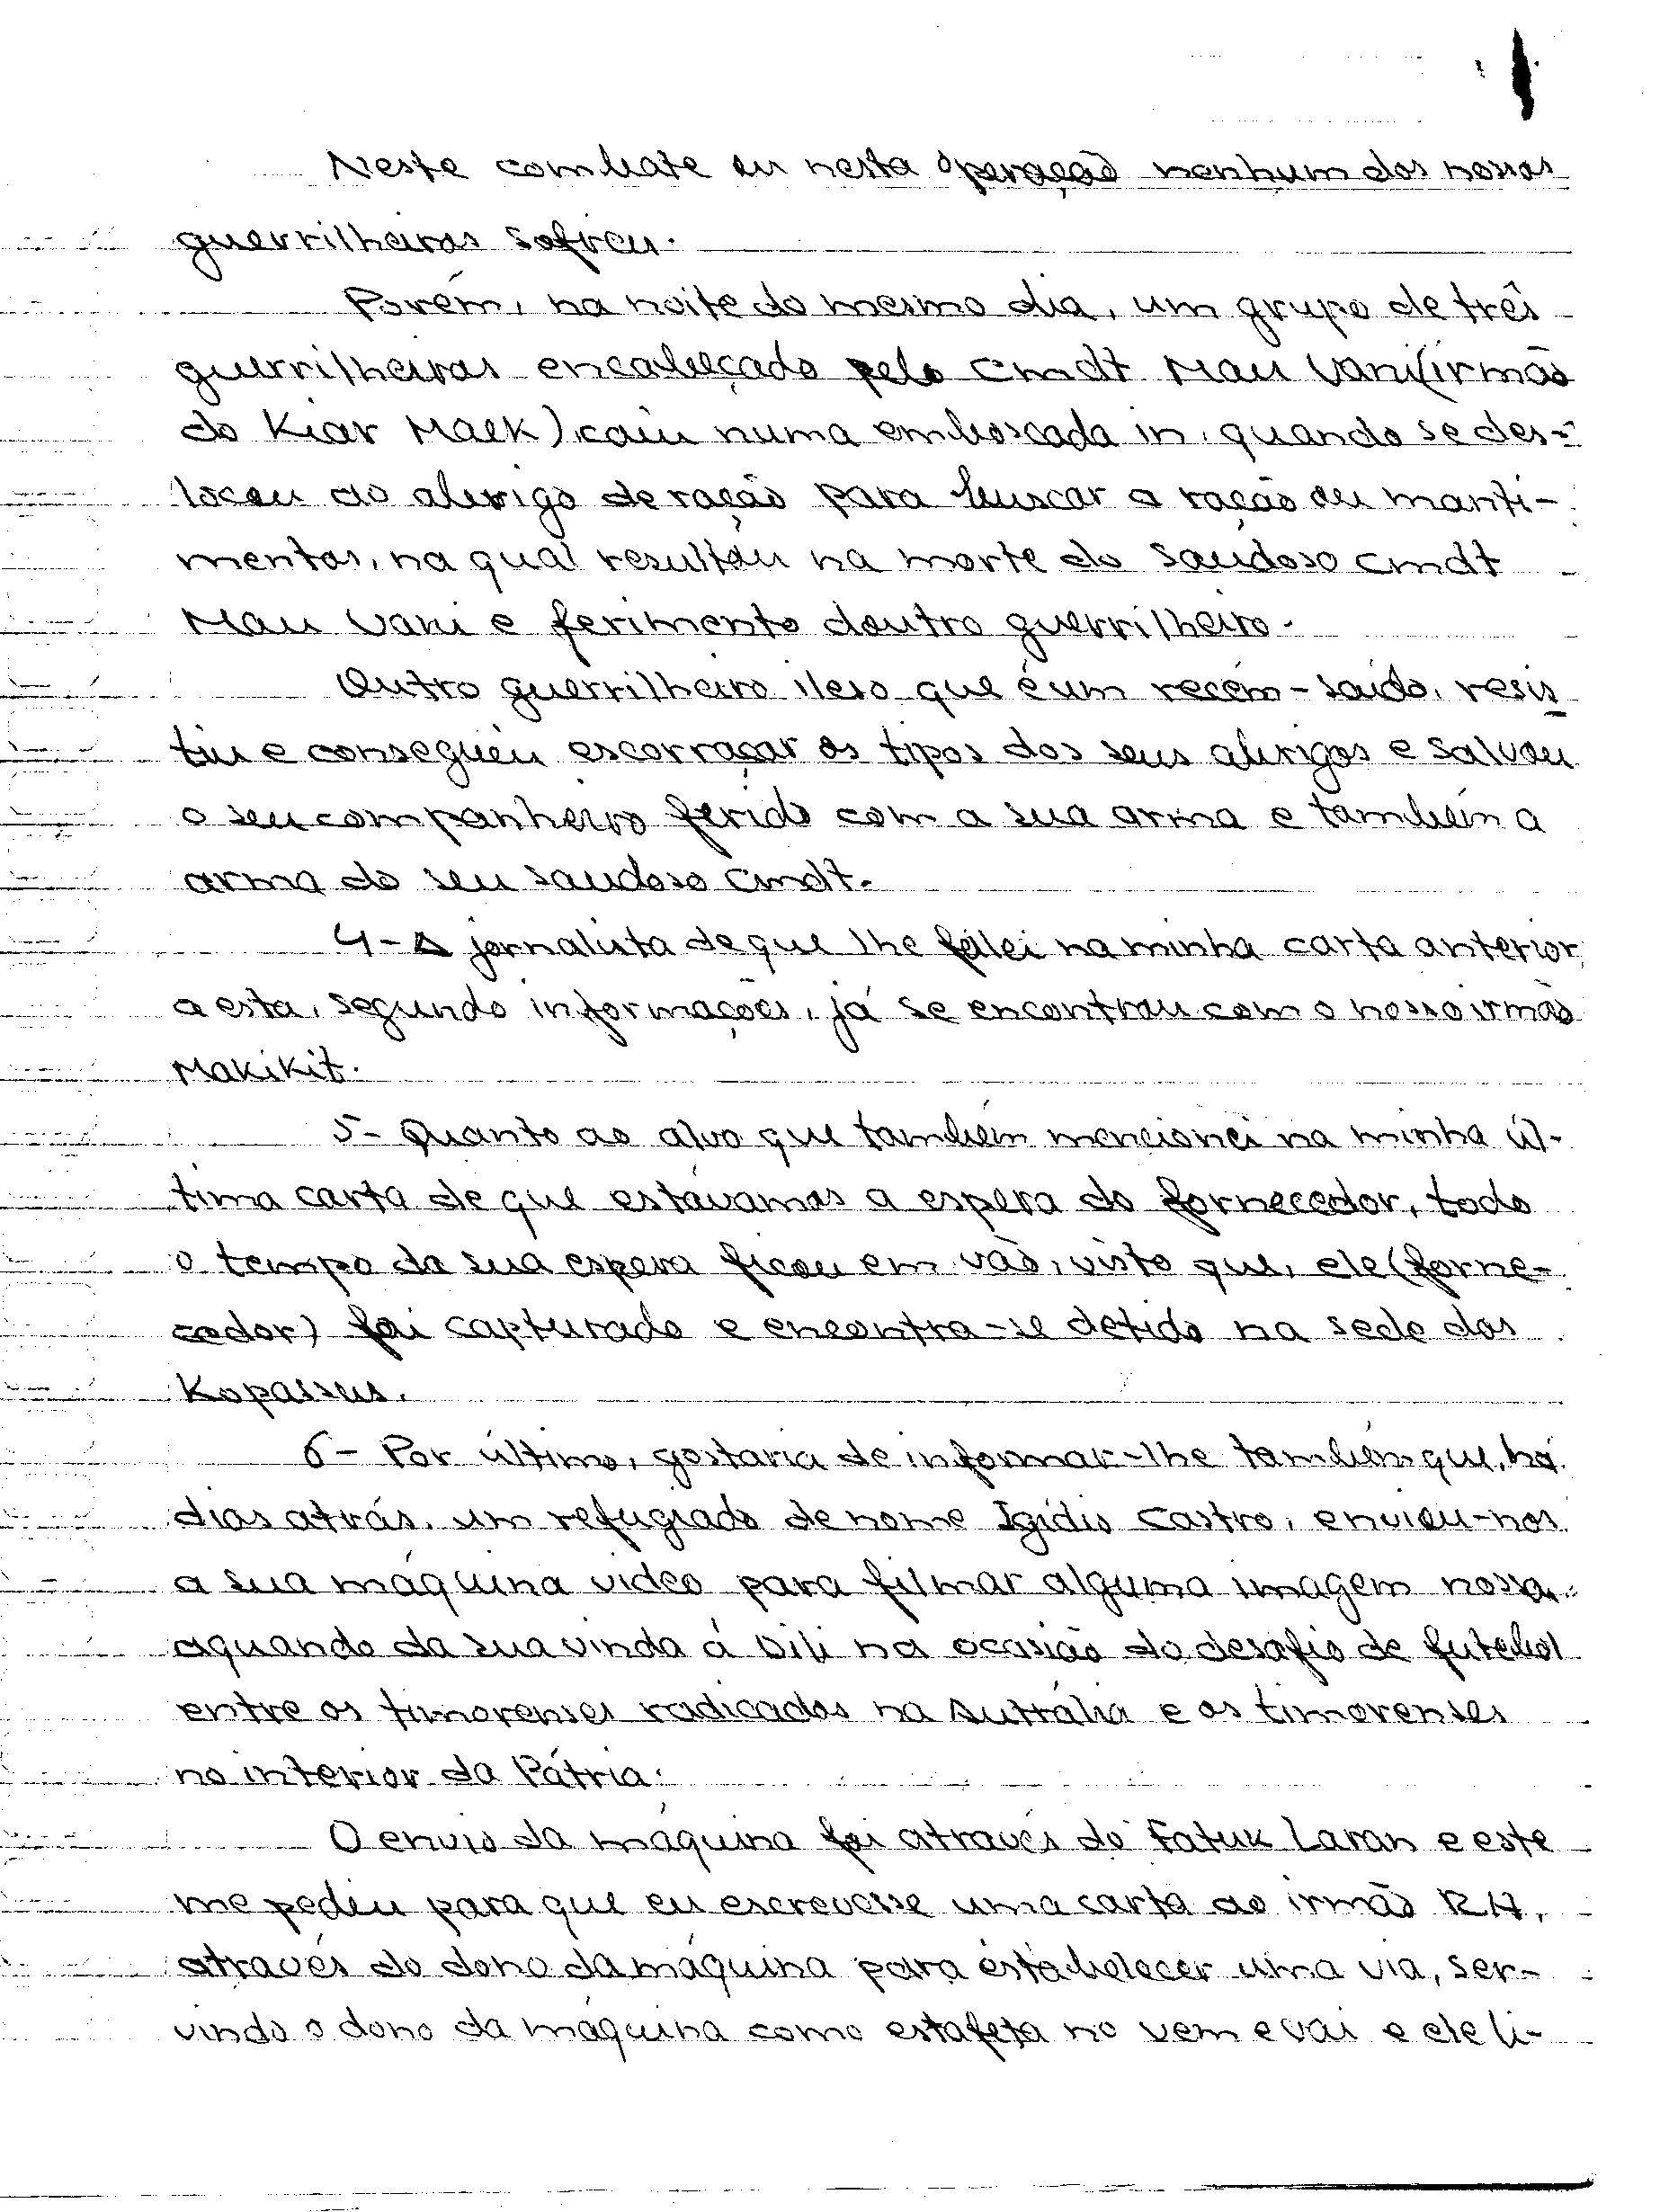 Neste combate ou nesta operação nenhum dos nossos
guerrilheiros sofreu.
Porém, na noite do mesmo dia, um grupo de três
guerrilheiros encabeçado pelo Cmdt Mau Vani (irmão
do Kiar Maek), caiu numa emboscada in. quando se des-
locou ao abrigo de ração para buscar a ração ou manti-
mentos, na qual resultou na morte do saudoso Cmdt
Mau Vani e ferimento doutro guerrilheiro.
Outro guerrilheiro ileso que é um recém-saído, resis
tiu e conseguiu escorraçar os tipos dos seus abrigos e salvou
o seu companheiro ferido com a sua arma e também a
arma do seu saudoso Cmdt.
4- A jornalista de que lhe falei na minha carta anterior
a esta, segundo informações, já se encontrou com o nosso irmão
Makikit.
5- Quanto ao alvo que também mencionei na minha úl-
tima carta de que estávamos a espera do fornecedor, todo
o tempo da sua espera ficou em vão, visto que, ele (forne-
cedor) foi capturado e encontra-se detido na sede dos
Kopassus.
6- Por último, gostaria de informar-lhe também que, há
dias atrás, um refugiado de nome Igídio Castro, enviou-nos
a sua máquina video para filmar alguma imagem nossa
aquando da sua vinda á Dili na ocasião do desafio de futebol
entre os timorenses radicados na Autrália e os timorenses
no interior da Pátria.
O envio da máquina foi através do Fatuk Laran e este
me pediu para que eu escrevesse uma carta ao irmão RH,
através do dono da máquina para estabelecer uma via, ser-
vindo o dono da máquina como estafeta no vem e vai e ele li-